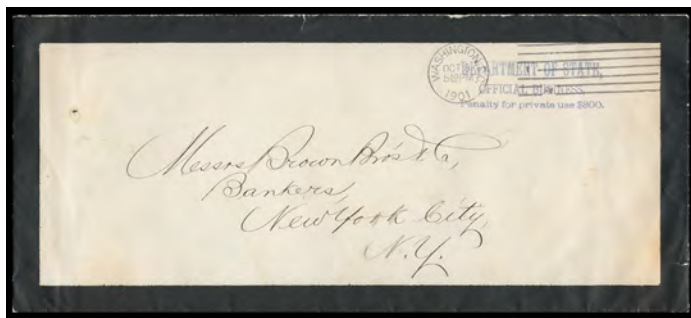 WASHINGTON, D.C.
OCT
1901
DEPARTMENT OF STATE,
OFFICIAL BUSINESS,
Penalty for private use $300.
Messrs Brown Bros & Co,
Bankers,
New York City,
N.Y.